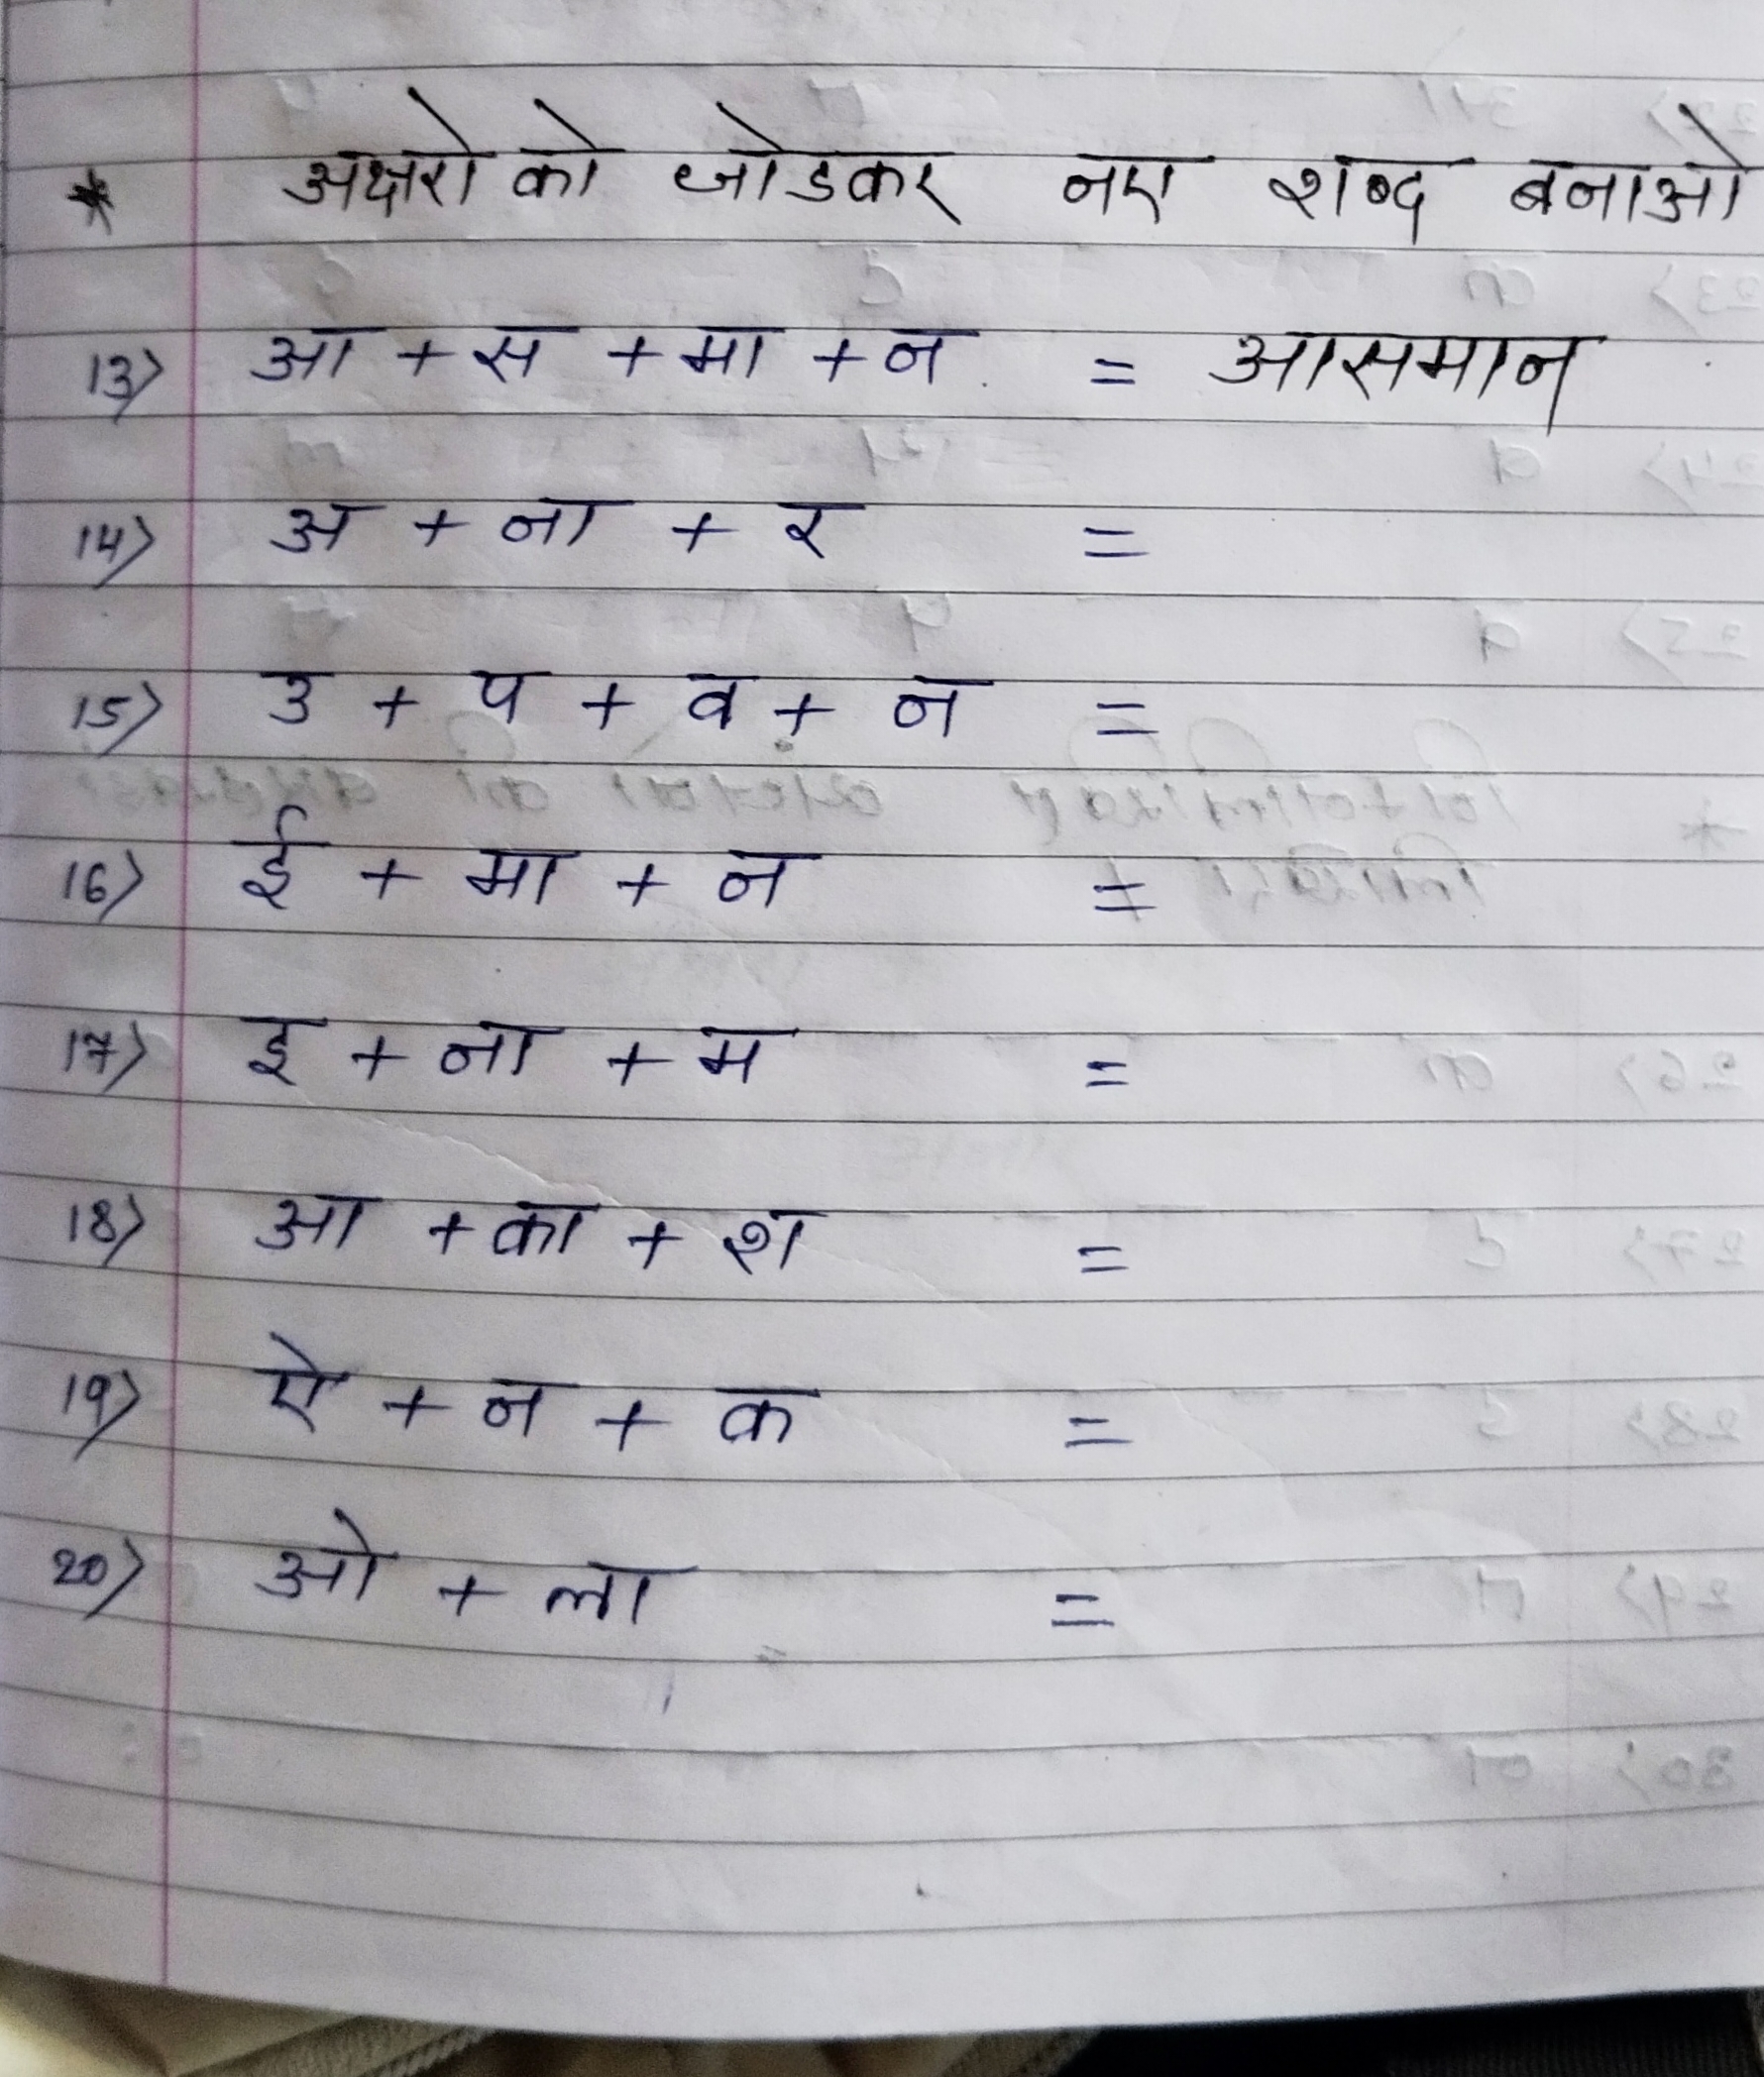 * अक्षरो को जोडकर नए शब्द बनाओ
13) आ + स + मा + न = आसमान
14) अ + ना + र =
15) उ + प + व + न =
16) ई + मा + न =
17) इ + ना + म =
18) आ + का + श =
19) ऐ + न + क =
20) ओ + ला =